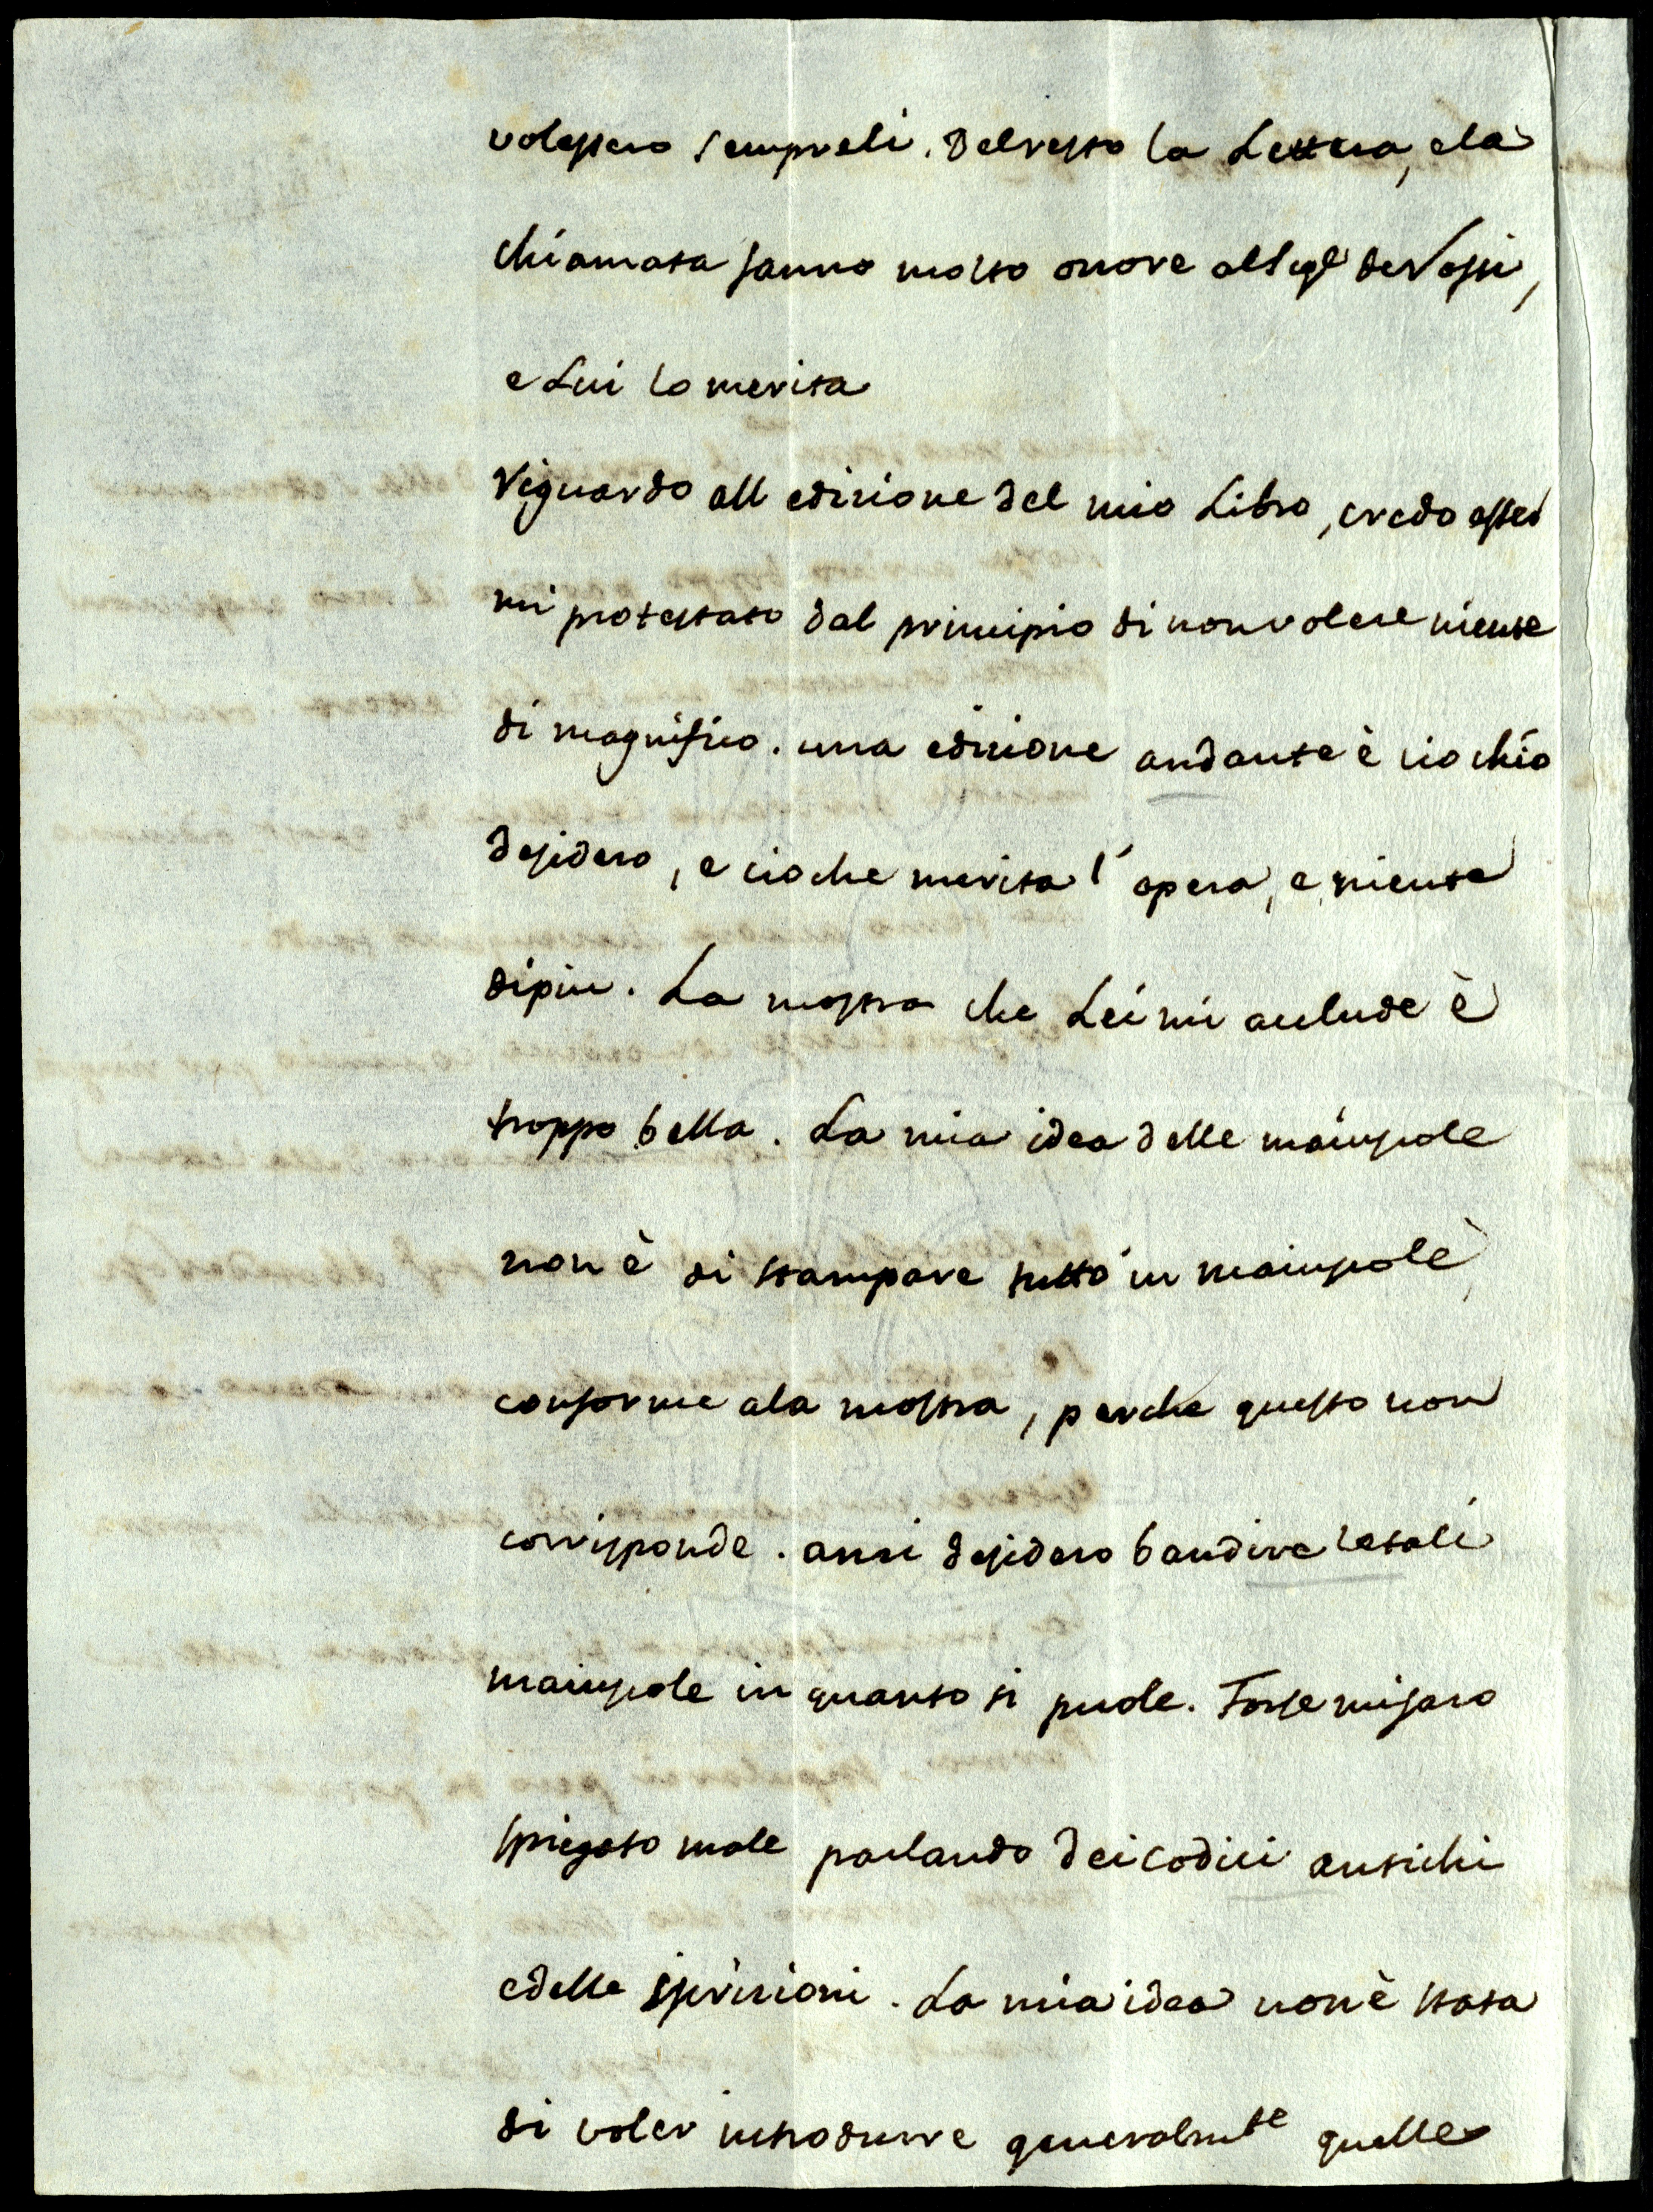 volessero sempreli. Del resto la Lettera, ela
chiamata fanno molto onore al Sigr deRossi,
e Lui lo merita
Riguardo all edizione del mio Libro, credo esser
mi protestato dal principio di non volere niente
di magnifico. una edizione andante è cio chio
desidero, e cio che merita l' opera, e niente
dipiu. La mostra che Lei mi acclude è
troppo bella. La mia idea delle maiuscole
non è di stampare tutto in maiuscole,
conforme ala mostra, perche questo non
corrisponde. anzi desidero bandire letali
maiuscole in quanto si puole. Forse misaro
spiegato male parlando dei codici antichi
edelle iscrizioni. La mia idea non è stata
di voler introdurre generalmte quelle